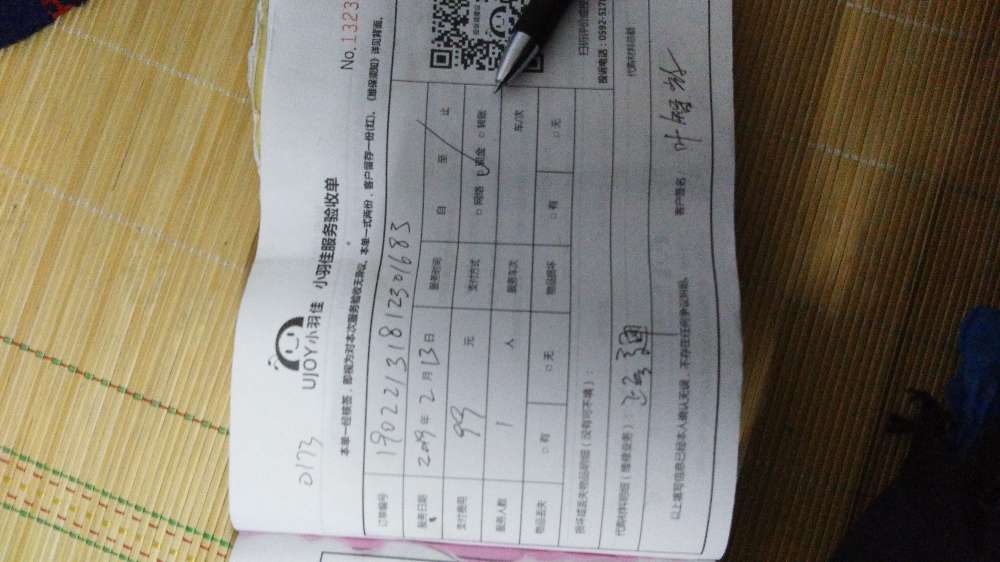 0173
UJOY小羽佳 小羽佳服务验收单
No.1323
本单一经核签，即视为对本次服务验收无异议。本单一式两份，客户留存一份(红)。《维保须知》详见背面。
订单编号 190221318123016 83
服务日期 2019年 2月 13日 服务时间 自 至 止
支付费用 99 元 支付方式 □网络 □现金 □转账
服务人数 1 人 服务车次 车/次
物品丢失 □有 □无 物品损坏 □有 □无
损坏或丢失物品明细（没有可不填）：
扫描评价
投诉电话：0592-517
代购材料明细（维修业务）：
代购材料总额
以上填写信息已经本人确认无误，不存在任何争议纠纷。 客户签名 叶